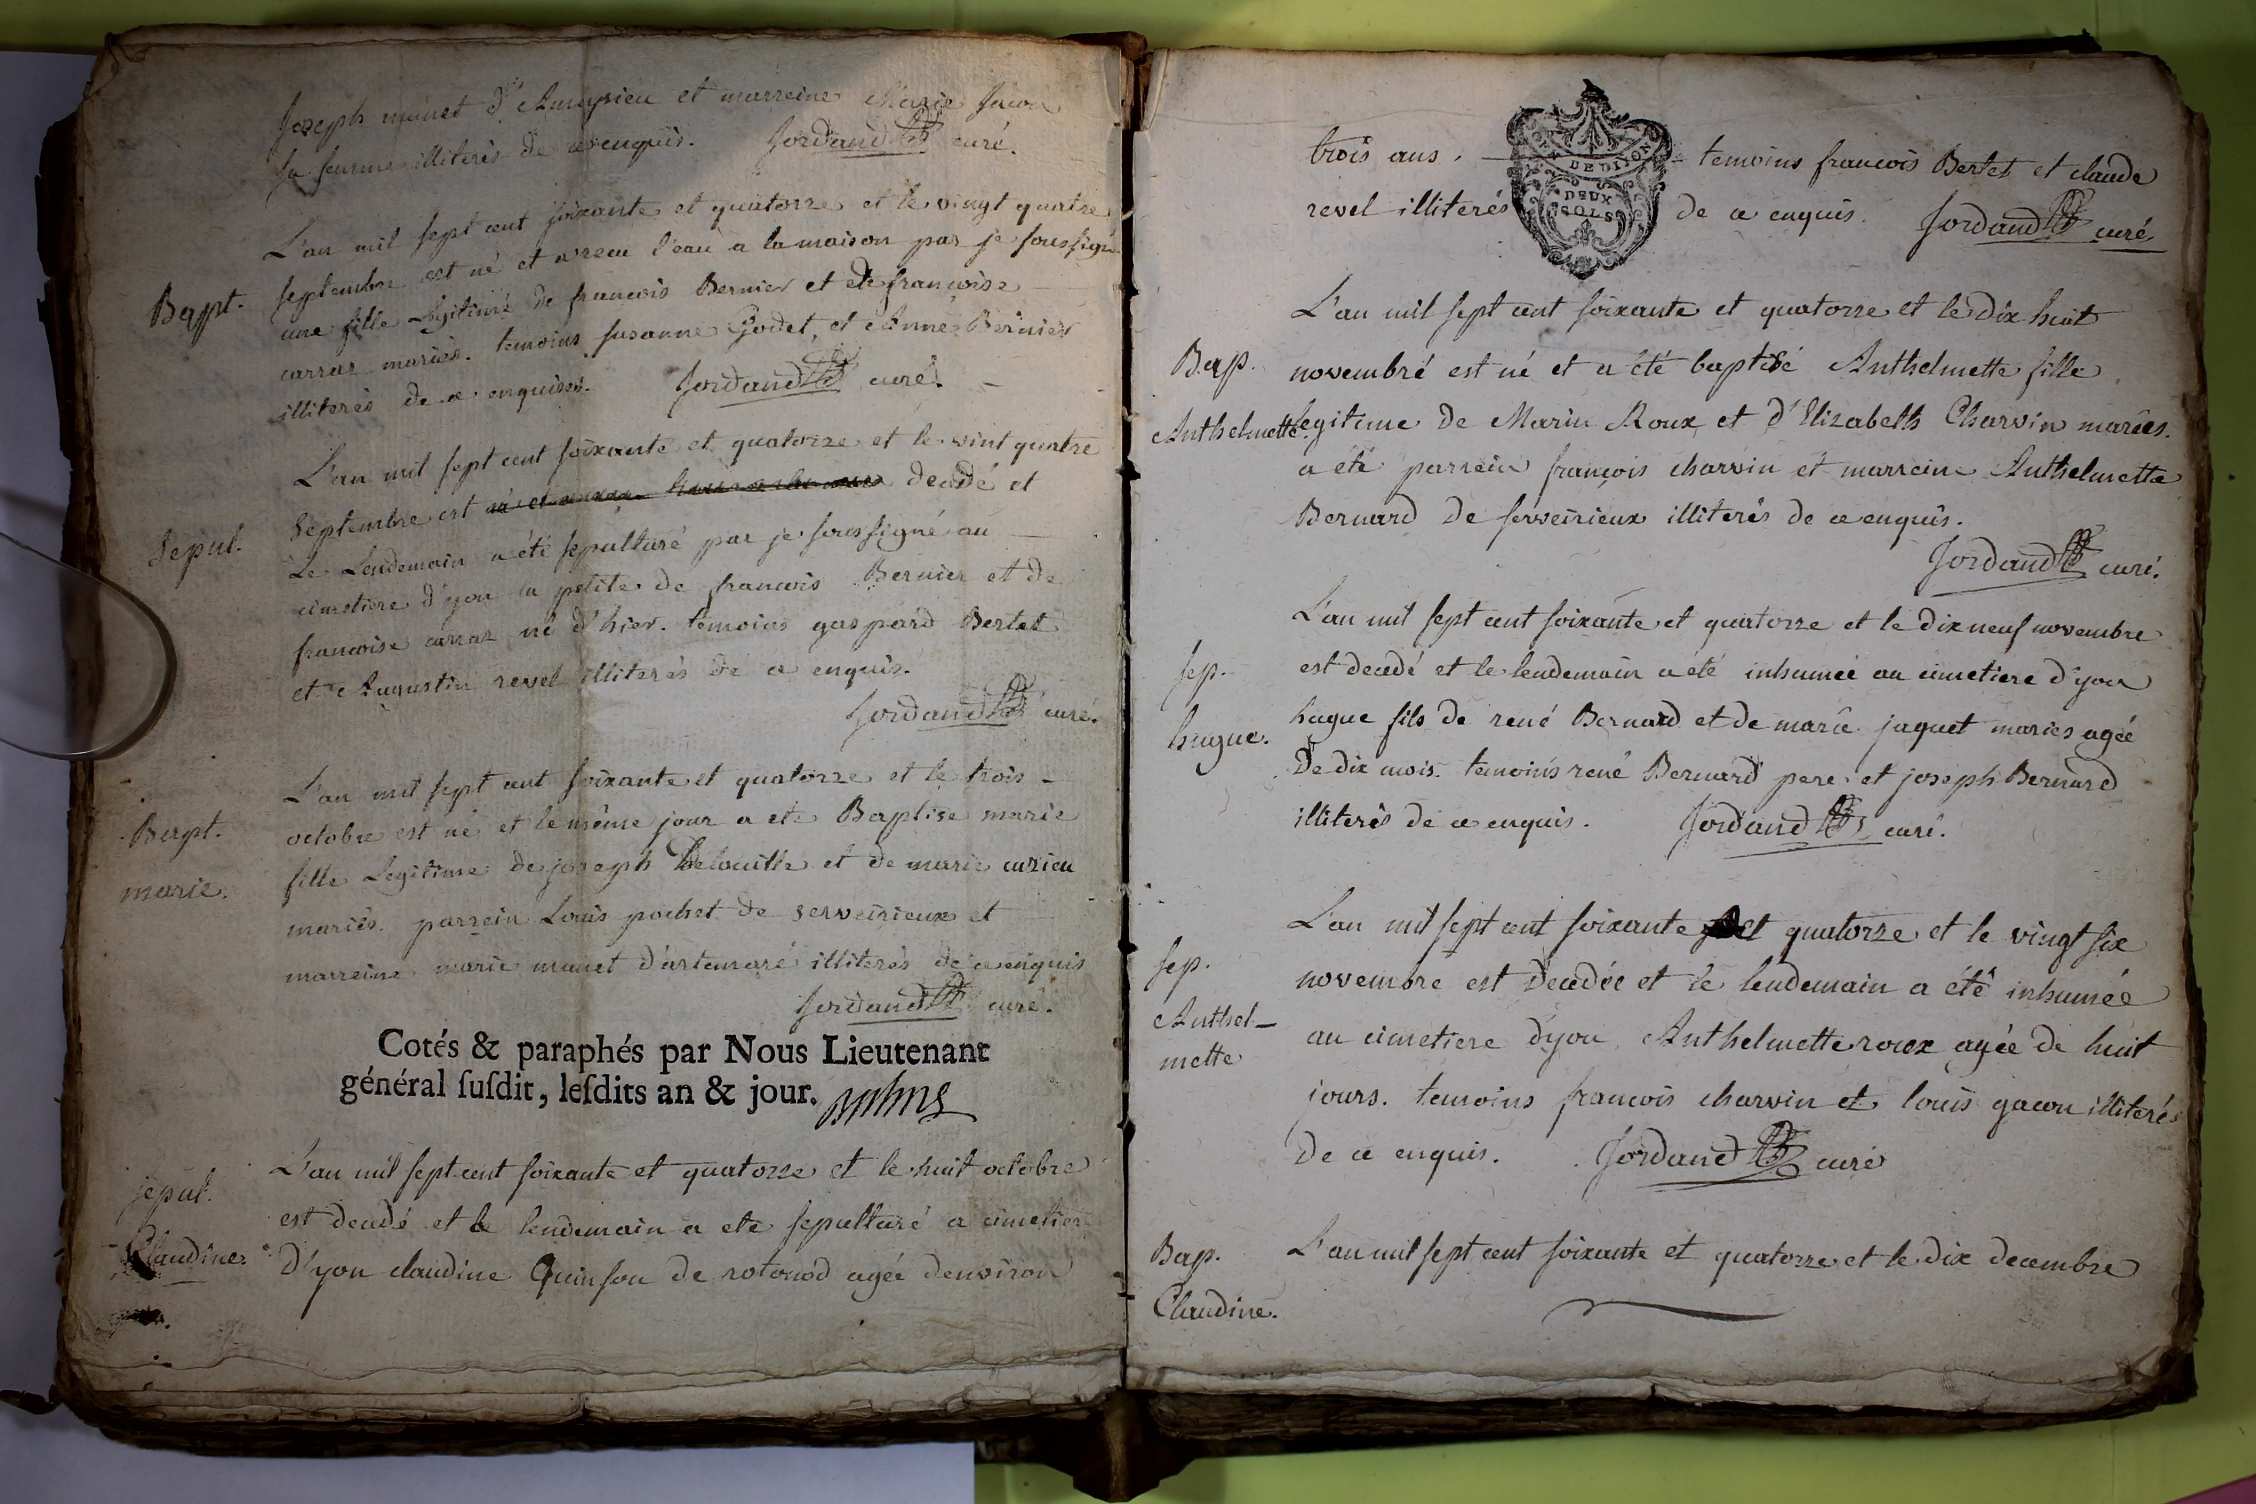 Joseph munet d'Ameysieu et marreine Marie
sa femme illiterés de ce enquis. Jordand curé.
Bapt.
L'an mil sept cent soixante et quatorze et le vingt quatre
septembre est né et a recu l'eau a la maison par je soussigné
une fille legitime de francois Bernier et de francoise
carraz mariés. temoins susanne Godet, et Anne Bernier
illiterés de ce enquises. Jordand curé.
Sepul.
L'an mil sept cent soixante et quatorze et le vint quatre
Septembre est decedé et
Le Lendemain a été sepulturé par je soussigné au
cimetiere d'yon la petite de francois Bernier et de
francoise carraz né d'hier. temoins gaspard Bertet
et Augustin revel illiterés de ce enquis.
Jordand curé.
Bapt.
marie.
L'an mil sept cent soixante et quatorze et le trois
octobre est né et le même jour a ete Baptise marie
fille Legitime de joseph et de marie curieu
mariés. parrein Louis pochet de serveirieux et
marreine marie munet d'artemare illiterés de ce enquis
Jordand curé.
Cotés & paraphés par Nous Lieutenant
général susdit, lesdits an & jour.
sepul.
Claudine.
L'an mil sept cent soixante et quatorze et le huit octobre
est decedé et le lendemain a ete sepulturé a cimetiere
D'yon claudine Quinson de rotonod agée denviron
trois ans. temoins francois Bertet et claude
revel illiterés de ce enquis. Jordand curé.
DE DIJON
DEUX
SOLS
Bap.
Anthelmette.
L'an mil sept cent soixante et quatorze et le dix huit
novembre est né et a été baptisé Anthelmette fille
legitime de Marin Roux et d'Elizabeth Charvin mariés.
a été parrein françois charvin et marreine Anthelmette
Bernard de serveirieux illiterés de ce enquis.
Jordand curé.
sep.
hugue.
L'an mil sept cent soixante et quatorze et le dix neuf novembre
est decedé et le lendemain a été inhumée au cimetiere d'yon
hugue fils de rené Bernard et de marie jaquet mariés agée
De dix mois. temoins rené Bernard pere et joseph Bernard
illiterés de ce enquis. Jordand curé.
sep.
Anthel-
mette
L'an mil sept cent soixante et quatorze et le vingt six
novembre est decedée et le lendemain a été inhumée
au cimetiere d'yon Anthelmette roux agée de huit
jours. temoins francois charvin et louis gacon illiterés
De ce enquis. Jordand curé
Bap.
Claudine.
L'an mil sept cent soixante et quatorze et le dix decembre